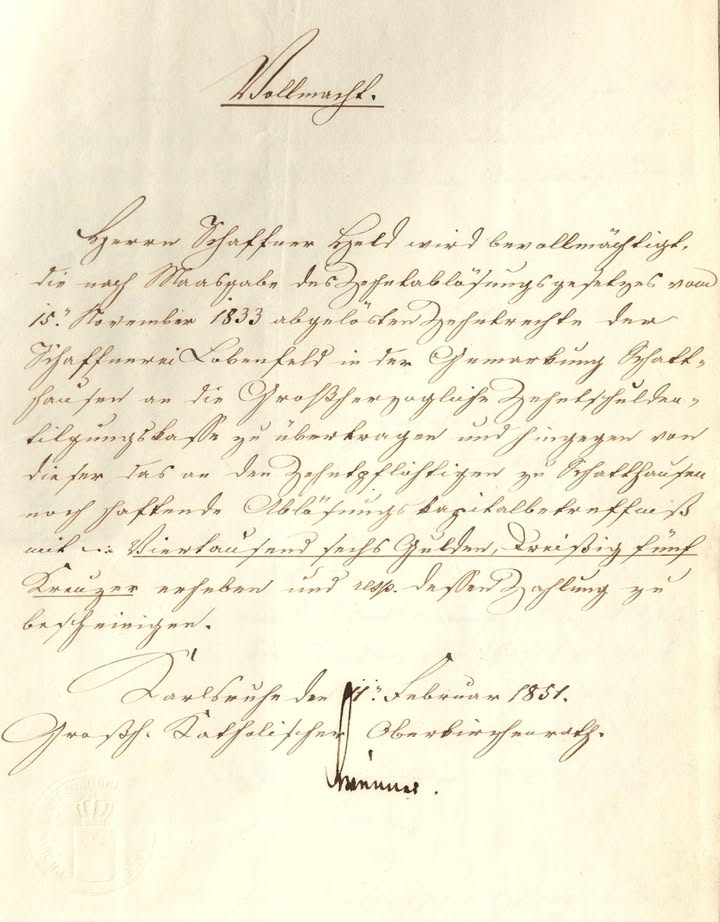 Vollmacht.
Herrn Schaffner Held wird bevollmächtigt,
die nach Maasgabe des Zehntablösungsgesetzes vom
15. November 1833 abgelösten Zehntrechte der
Schaffnerei Lobenfeld in der Gemarkung Schatt-
hausen an die Großherzogliche Zehntschulden-
tilgungskasse zu übertragen und hingegen von
dieser das an den Zehntpflichtigen zu Schatthausen
noch haftende Ablösungskapitalbetreffniß
mit ... Viertausend sechs Gulden, dreißig fünf
Kreuzer erheben und resp. dessen Zahlung zu
bescheinigen.
Karlsruhe den 11. Februar 1851.
Großh. Katholischer Oberkirchenrath.